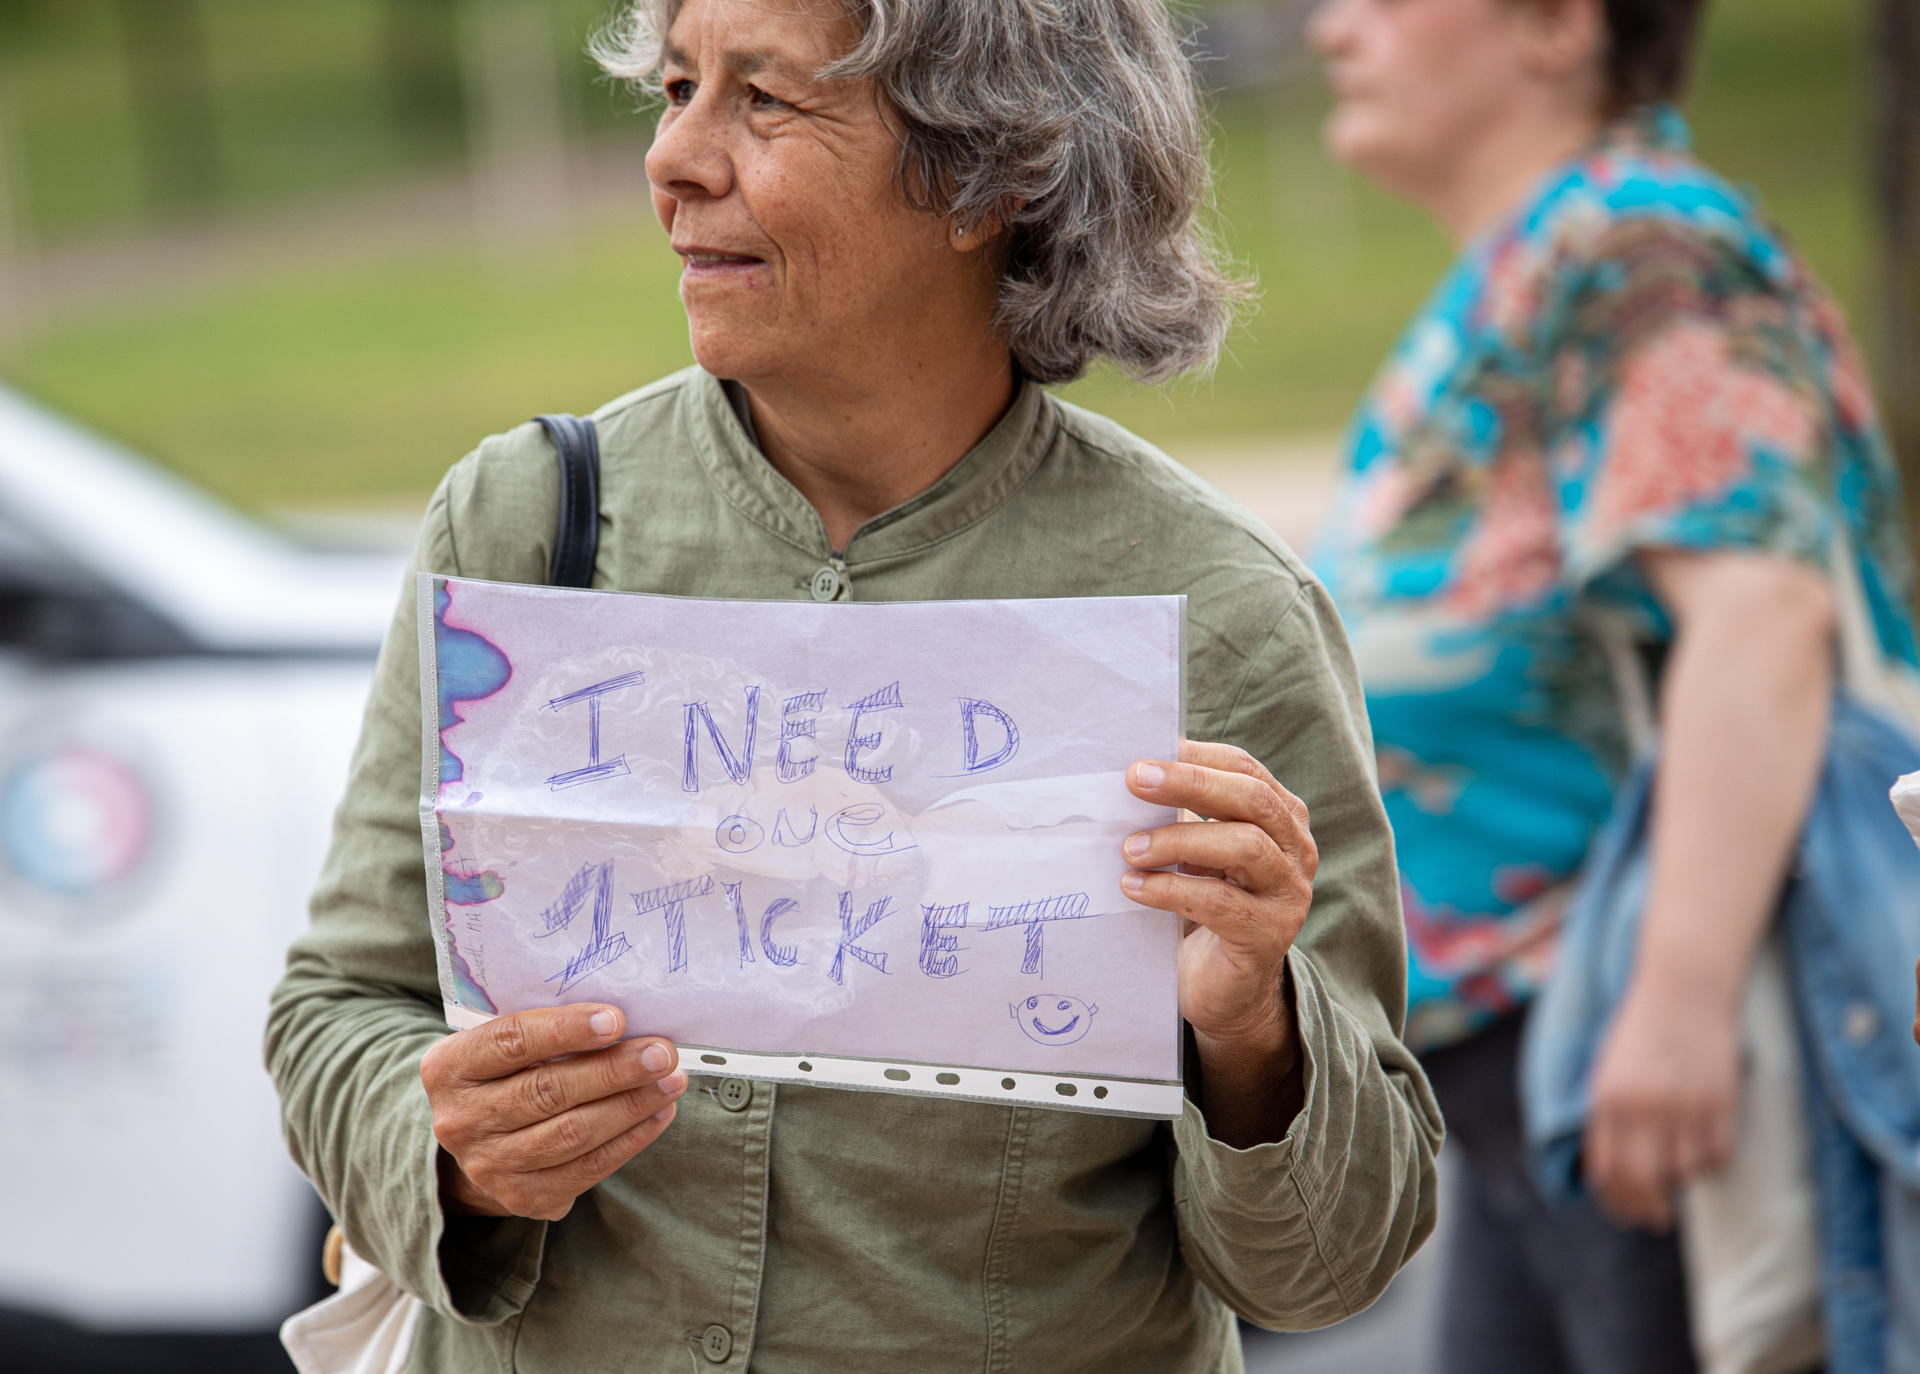 I NEED
one
1 TICKET